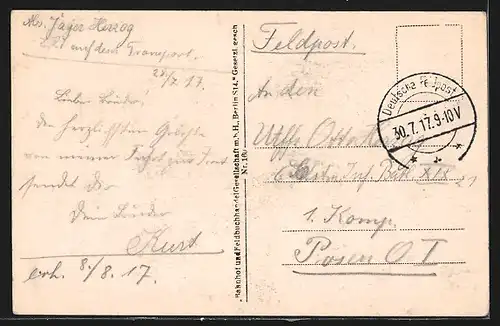 Abs. Jäger Herzog
Zt. auf dem Transport.
28/7. 17.
Lieber Bruder!
Die herzlichsten Grüße
von meiner Fahrt zur Front
sendet dir
Dein Bruder
Kurt
erh. 8./8. 17.
Bahnhof und Feldbuchhandel Gesellschaft m.b.H., Berlin S14. Gesetzl. gesch
Nr. 16
Feldpost.
Deutsche Feldpost
30.7.17.9-10V
An den
Uffz. Otto Herzog
Inf. Batl. XIX
1. Komp.
Posen O I